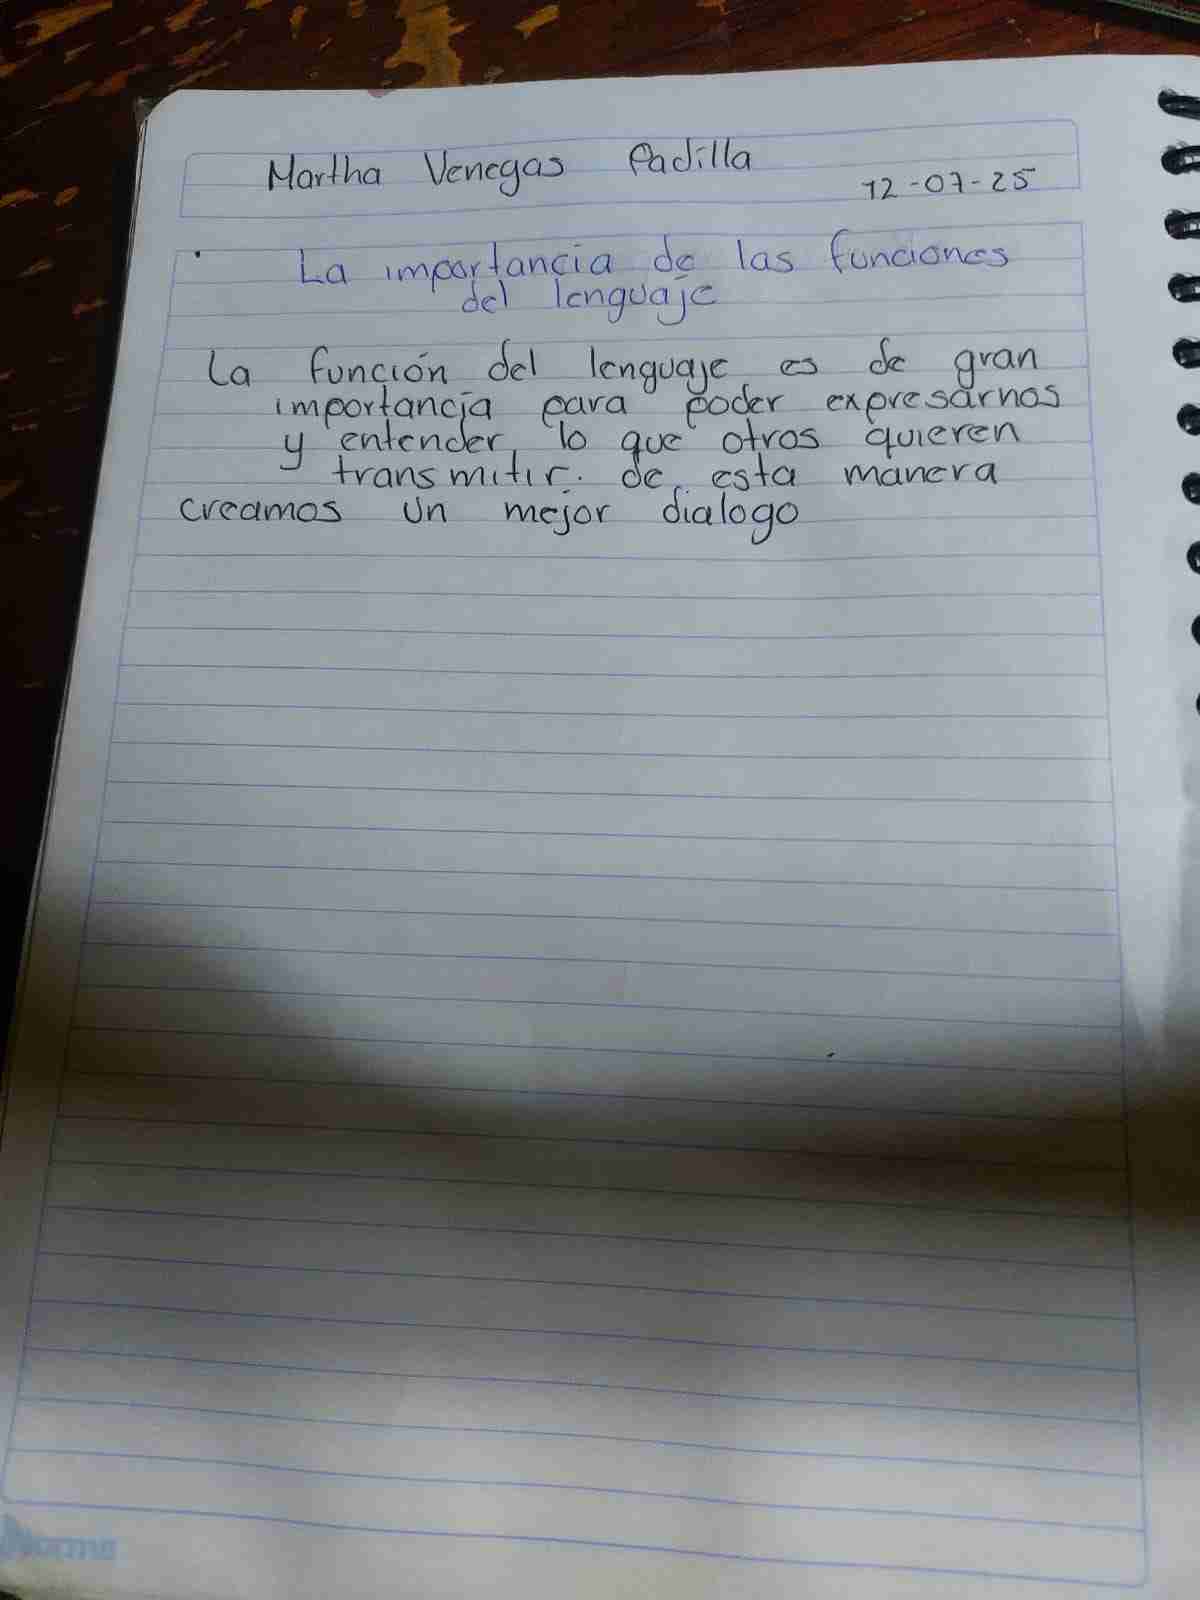 Martha Venegas Padilla
12-07-25
La importancia de las funciones
del lenguaje
La función del lenguaje es de gran
importancia para poder expresarnos
y entender lo que otros quieren
transmitir. de esta manera
creamos un mejor dialogo
Norma